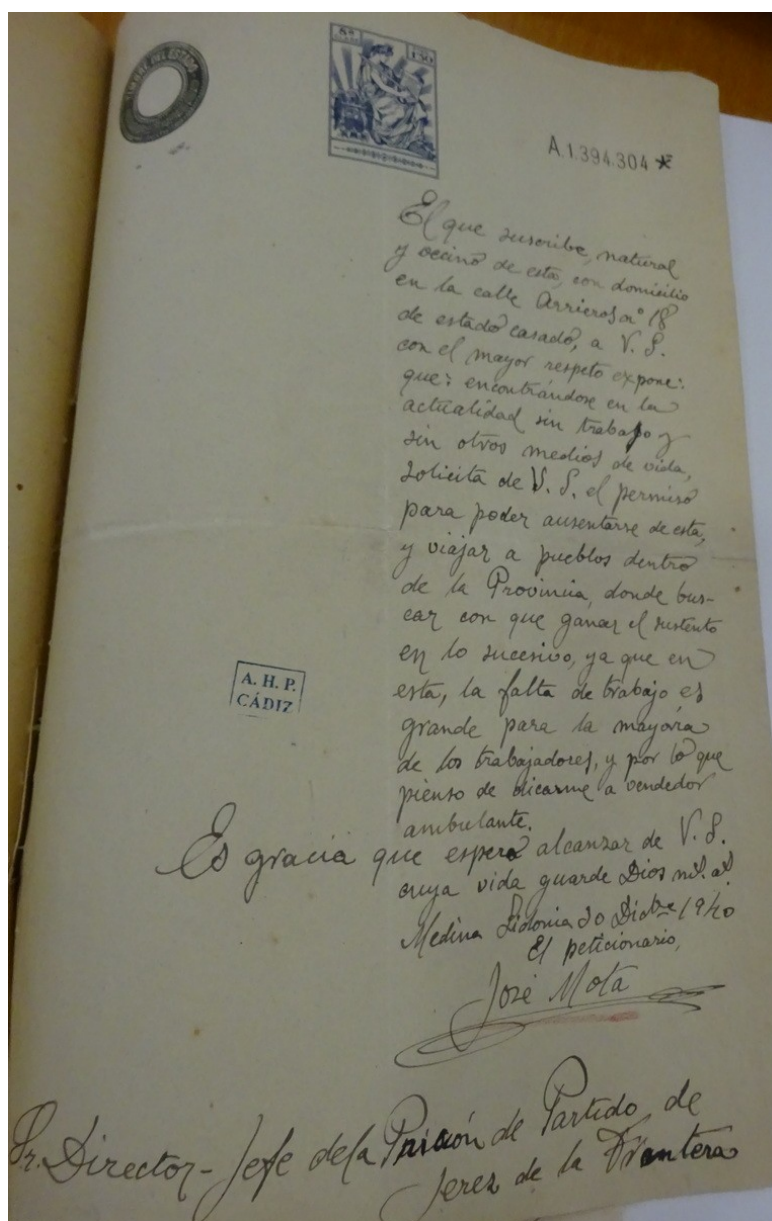 TIMBRE DEL ESTADO
8ª
1'50
A.1.394.304 *
El que suscribe, natural
y vecino de esta, con domicilio
en la calle Arrieros nº 18
de estado casado, a V. S.
con el mayor respeto expone:
que: encontrándose en la
actualidad sin trabajo y
sin otros medios de vida,
solicita de V. S. el permiso
para poder ausentarse de esta,
y viajar a pueblos dentro
de la Provincia, donde bus-
car con que ganar el sustento
en lo sucesivo, ya que en
esta, la falta de trabajo es
grande para la mayoria
de los trabajadores, y por lo que
pienso de dicarme a vendedor
ambulante.
Es gracia que espera alcanzar de V. S.
cuya vida guarde Dios ms. as.
Medina Sidonia 30 Dicbre 1940
El peticionario,
José Mota
A. H. P.
CÁDIZ
Sr. Director-Jefe de la Prisión de Partido de
Jerez de la Frontera